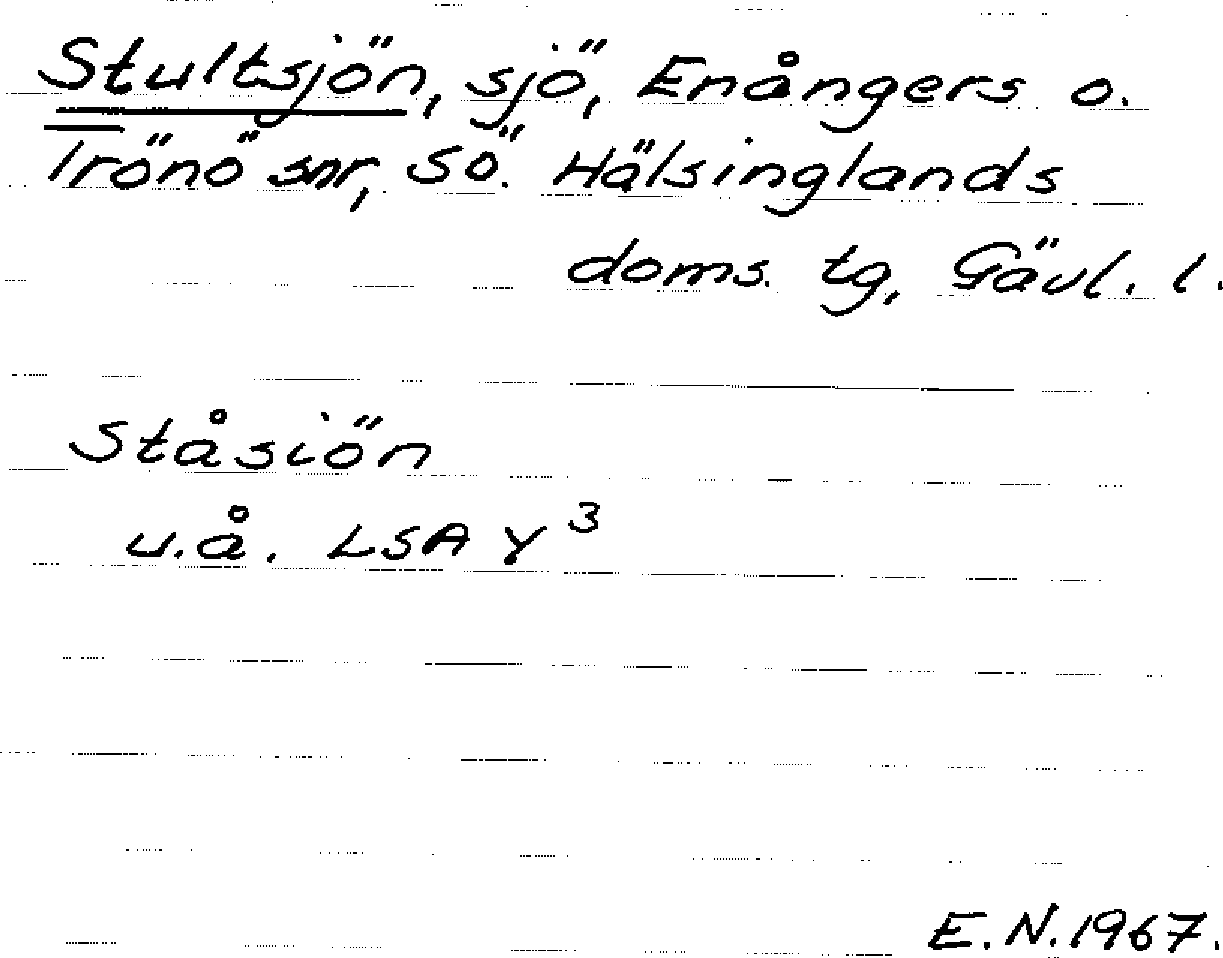 Stultsjön, sjö, Enångers o.
Trönö snr, SÖ. Hälsinglands
doms. tg, Gävl. l.
Ståsiön
u.å. LSA Y³
E.N.1967.